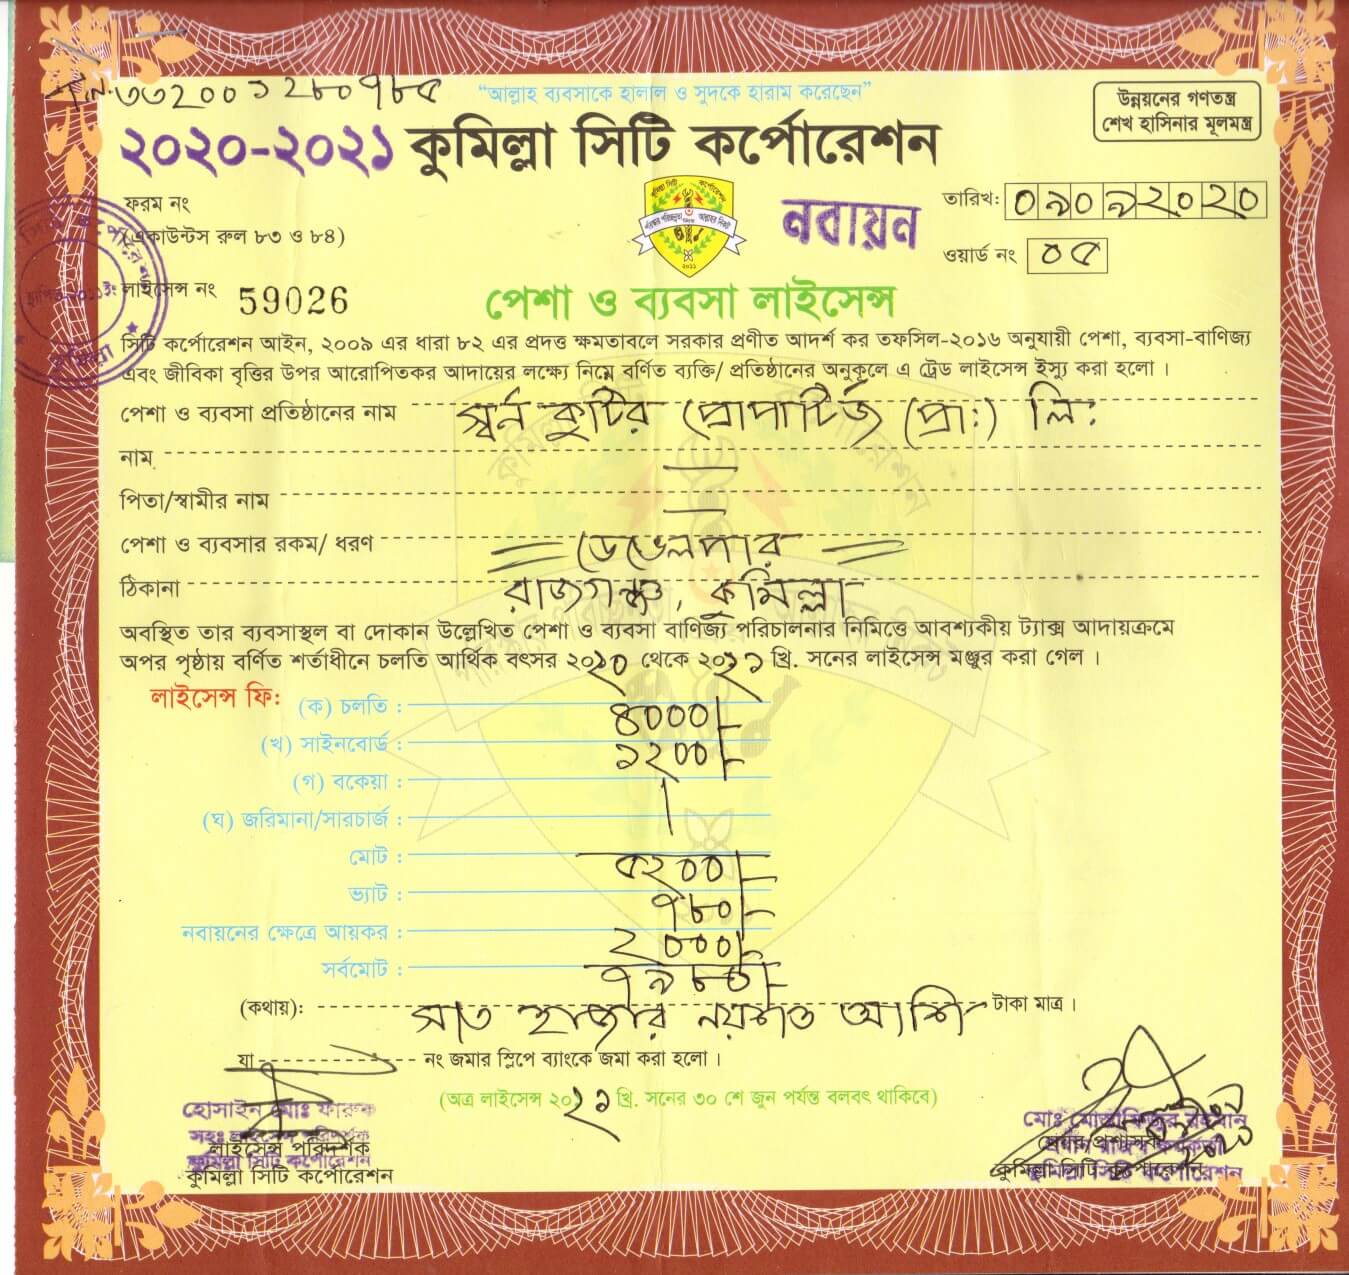 “আল্লাহ ব্যবসাকে হালাল ও সুদকে হারাম করেছেন”
উন্নয়নের গণতন্ত্র
শেখ হাসিনার মূলমন্ত্র
২০২০-২০২১ কুমিল্লা সিটি কর্পোরেশন
ফরম নং
(একাউন্টস রুল ৮৩ ও ৮৪)
নবায়ন
তারিখ: ০৯০৯২০২০
ওয়ার্ড নং ০৫
লাইসেন্স নং 59026
পেশা ও ব্যবসা লাইসেন্স
সিটি কর্পোরেশন আইন, ২০০৯ এর ধারা ৮২ এর প্রদত্ত ক্ষমতাবলে সরকার প্রণীত আদর্শ কর তফসিল-২০১৬ অনুযায়ী পেশা, ব্যবসা-বাণিজ্য
এবং জীবিকা বৃত্তির উপর আরোপিতকর আদায়ের লক্ষ্যে নিম্নে বর্ণিত ব্যক্তি/ প্রতিষ্ঠানের অনুকূলে এ ট্রেড লাইসেন্স ইস্যু করা হলো ।
পেশা ও ব্যবসা প্রতিষ্ঠানের নাম স্বর্ন কুটির প্রোপার্টিজ (প্রাঃ) লিঃ
নাম
পিতা/স্বামীর নাম
পেশা ও ব্যবসার রকম/ ধরণ ডেভেলপার
ঠিকানা রাজগঞ্জ, কুমিল্লা
অবস্থিত তার ব্যবসাস্থল বা দোকান উল্লেখিত পেশা ও ব্যবসা বাণিজ্য পরিচালনার নিমিত্তে আবশ্যকীয় ট্যাক্স আদায়ক্রমে
অপর পৃষ্ঠায় বর্ণিত শর্তাধীনে চলতি আর্থিক বৎসর ২০২০ থেকে ২০২১ খ্রি. সনের লাইসেন্স মঞ্জুর করা গেল ।
লাইসেন্স ফি:
(ক) চলতি : ৪০০০/-
(খ) সাইনবোর্ড : ১২০০/-
(গ) বকেয়া :
(ঘ) জরিমানা/সারচার্জ :
মোট : ৫২০০/-
ভ্যাট : ৭৮০/-
নবায়নের ক্ষেত্রে আয়কর : ২০০০/-
সর্বমোট : ৭৯৮০/-
(কথায়): সাত হাজার নয়শত আশি টাকা মাত্র ।
যা নং জমার স্লিপে ব্যাংকে জমা করা হলো ।
(অত্র লাইসেন্স ২০২১ খ্রি. সনের ৩০ শে জুন পর্যন্ত বলবৎ থাকিবে)
হোসাইন মোঃ ফারুক
লাইসেন্স পরিদর্শক
কুমিল্লা সিটি কর্পোরেশন
মেয়র/প্রশাসক
কুমিল্লা সিটি কর্পোরেশন